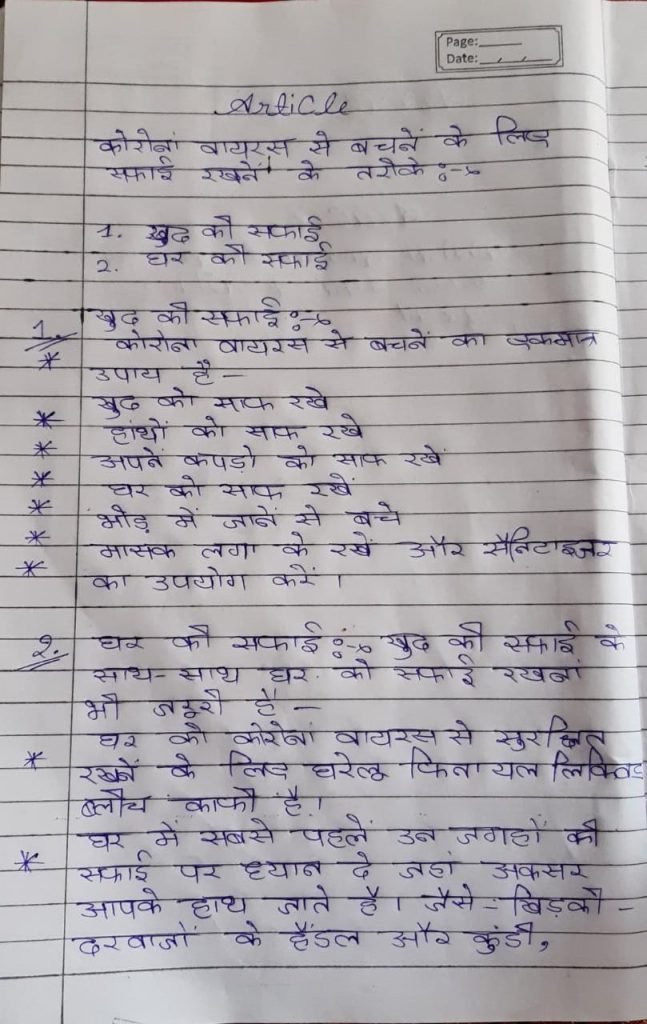 Page:
Date:
Article
कोरोनां वायरस से बचनें के लिए
सफाई रखनें के तरीके :-
1. खुद की सफाई
2. घर की सफाई
1. खुद की सफाई :-
* कोरोना वायरस से बचनें का एकमात्र
उपाय है -
* खुद को साफ रखे
* हांथों को साफ रखे
* अपनें कपड़ो को साफ रखें
* घर को साफ रखें
* भीड़ में जानें से बचे
* मास्क लगा के रखें और सैनिटाइजर
का उपयोग करें ।
2. घर की सफाई :- खुद की सफाई के
साथ-साथ घर की सफाई रखनां
भी जरूरी है -
* घर को कोरोनां वायरस से सुरक्षित
रखनें के लिए घरेलू फिनायल लिक्विड
ब्लीच काफी है ।
* घर में सबसे पहलें उन जगहों की
सफाई पर ध्यान दे जहां अकसर
आपके हाथ जाते है । जैसे - खिड़की -
दरवाजों के हैंडल और कुंडी,